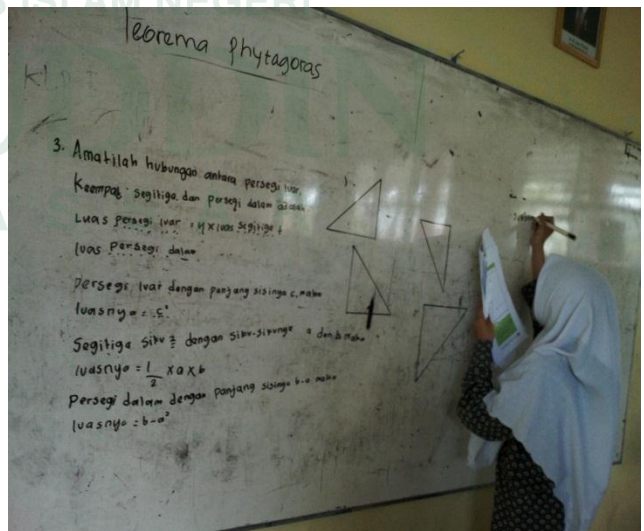 ISLAM NEGERI
Teorema Phytagoras
3. Amatilah hubungan antara persegi luar,
Keempat segitiga, dan persegi dalam
Luas persegi luar = 4 x luas segitiga +
luas persegi dalam
Persegi luar dengan panjang sisinya c, maka
luasnya = c²
Segitiga siku² dengan siku-sikunya a dan b maka
luasnya = 1/2 x a x b
Persegi dalam dengan panjang sisinya b-a maka
luasnya = b-a²